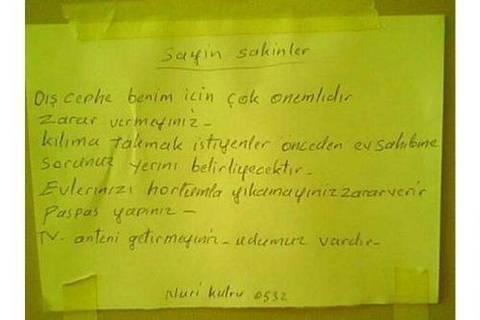 Sayin sakinler
Dış cephe benim için çok önemlidir
Zarar vermeyiniz -
Kılıma takmak istiyenler önceden ev sahibine
sorunuz yerini belirliyecektir.
Evlerinizi hortumla yıkamayiniz zarar verir
Paspas yapınız -
TV. anteni getirmeyiniz - udumuz vardır -
Nuri Kutru 0532